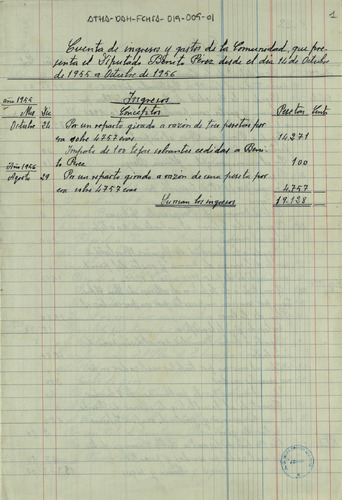 ATHA-DAH-FCHSD-019-009-01
1
Cuenta de ingresos y gastos de la Comunidad, que pre-
senta el Diputado Benito Perez desde el dia 14 de Octubre
de 1955 a Octubre de 1956
Ingresos
año 1955
Mes Dia Conceptos Pesetas Cents
Octubre 24 Por un reparto girado a razón de tres pesetas por
era sobre 4757 eras 14.271
Importe de 100 tejas sobrantes cedidas a Beni-
to Perez 100
Año 1956
Agosto 29 Por un reparto girado a razón de una peseta por
era sobre 4757 eras 4.757
Suman los ingresos 19.128